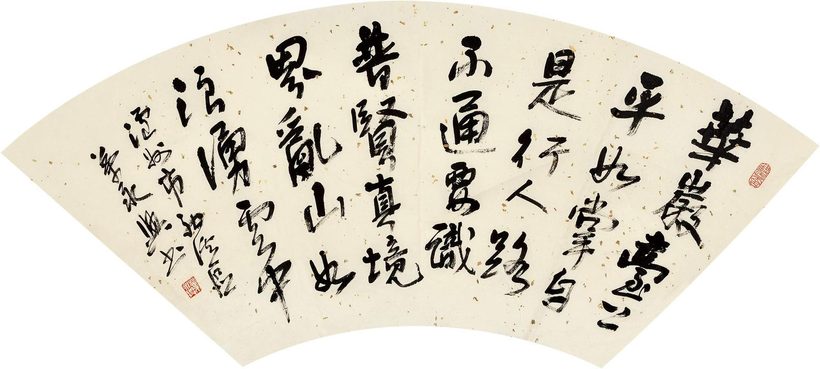 華巖臺上
平如掌自
是行人路
不通要識
普賢真境
界亂山如
浪湧雲中